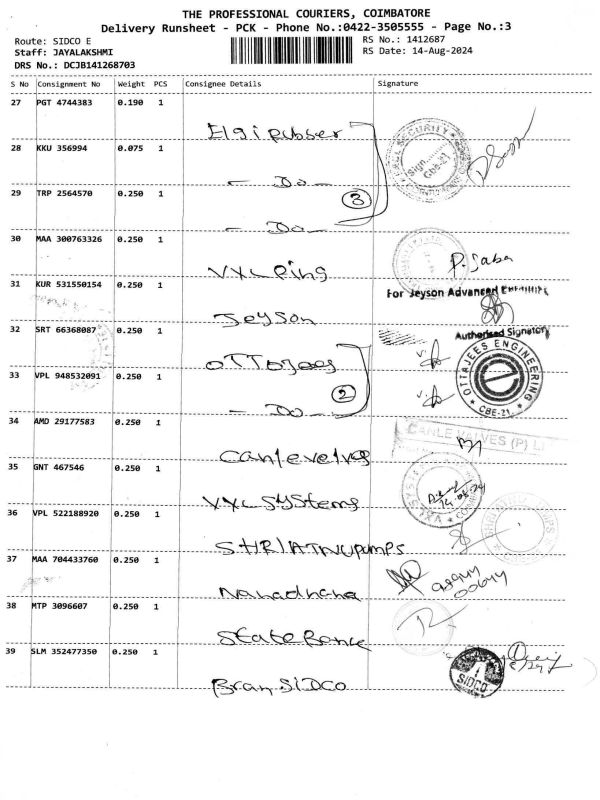 THE PROFESSIONAL COURIERS, COIMBATORE
Delivery Runsheet - PCK - Phone No.:0422-3505555 - Page No.:3
Route: SIDCO E
RS No.: 1412687
Staff: JAYALAKSHMI
RS Date: 14-Aug-2024
DRS No.: DCJB141268703
S No Consignment No Weight PCS Consignee Details Signature
27 PGT 4744383 0.190 1
Elgi rubber
SECURITY
Sign
CBE-21
28 KKU 356994 0.075 1
- Do -
29 TRP 2564570 0.250 1
3
- Do -
30 MAA 300763326 0.250 1
VXL Ping
P. Saba
31 KUR 531550154 0.250 1
For Jeyson Advanced
Jeyson
32 SRT 66368087 0.250 1
Authorised Signatory
OTTOJees
OTTAJEES ENGINEERING
e
CBE-21.
33 VPL 948532091 0.250 1
2
- Do -
34 AMD 29177583 0.250 1
CANLE VALVES (P) L
Canlevelvs
35 GNT 467546 0.250 1
14.08.24
VXL SYStems
36 VPL 522188920 0.250 1
SHRIATNUpumps
37 MAA 704433760 0.250 1
98944
00644
Nanadhana
38 MTP 3096607 0.250 1
State Bance
39 SLM 352477350 0.250 1
SIDCO
Bran SIDCO